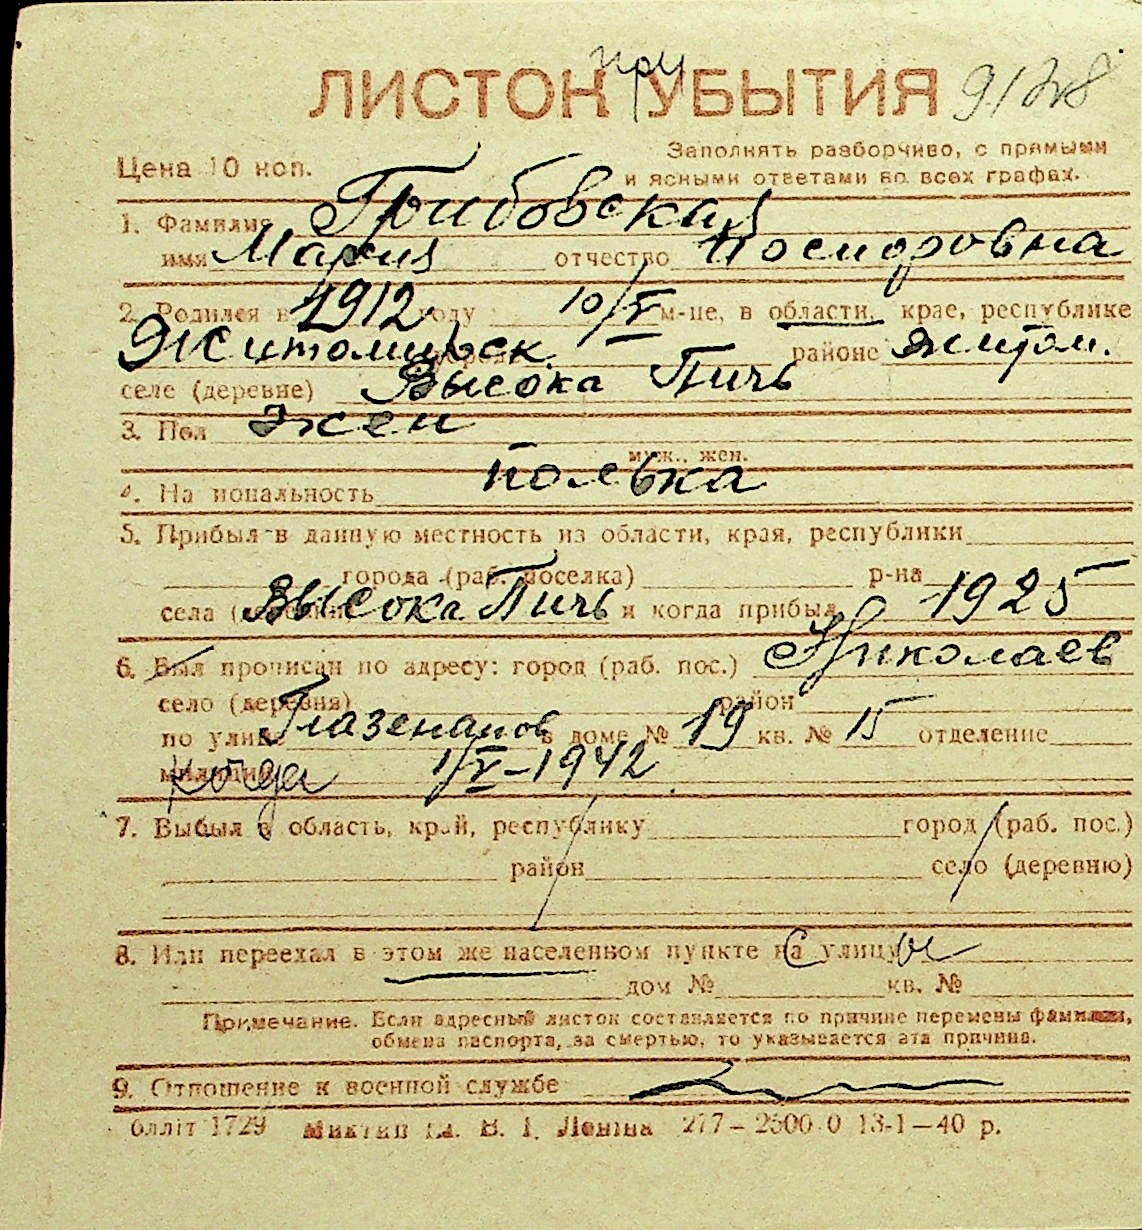 ЛИСТОК при УБЫТИЯ 9/28
Цена 10 коп.
Заполнять разборчиво, с прямыми
и ясными ответами во всех графах.
1. Фамилия Грибовская
имя Мария отчество Иосифовна
2. Родился в 1912 году 10/V м-це, в области, крае, республике
Житомирск. районе Житом.
селе (деревне) Высока Пичь
3. Пол жен
муж., жен.
4. Национальность полька
5. Прибыл в данную местность из области, края, республики
города (раб. поселка) р-на
села Высока Пичь и когда прибыл 1925
6. Был прописан по адресу: город (раб. пос.) Николаев
село (деревня) район
по улице Глазенапов в доме № 19 кв. № 15 отделение
милиции когда 1/V-1942
7. Выбыл в область, край, республику город (раб. пос.)
район село (деревню)
8. Или переехал в этом же населенном пункте на улицу
дом № кв. №
Примечание. Если адресный листок составляется по причине перемены фамилии,
обмена паспорта, за смертью, то указывается эта причина.
9. Отношение к военной службе
блліт 1729 В. І. Леніна 277–2500 0 13-1–40 р.